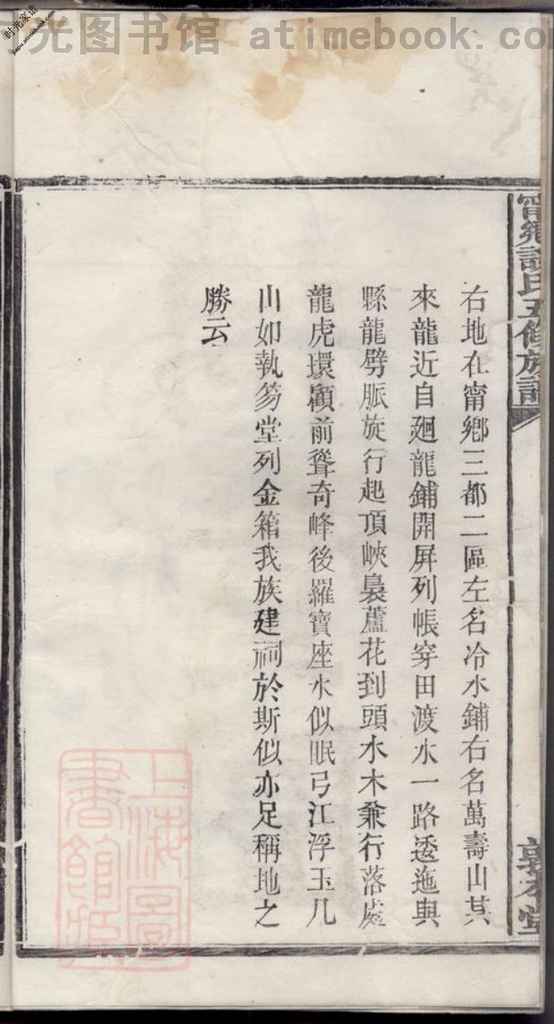 光图书馆 atimebook.co
右地在甯鄉三都二區左名冷水鋪右名萬壽山其
來龍近自廻龍鋪開屏列帳穿田渡水一路逶迤與
縣龍劈脈旋行起頂峽裊蘆花到頭水木兼行落處
龍虎環顧前聳奇峰後羅寶座水似眠弓江浮玉几
山如執笏堂列金箱我族建祠於斯似亦足稱地之
勝云
上海圖
書館藏